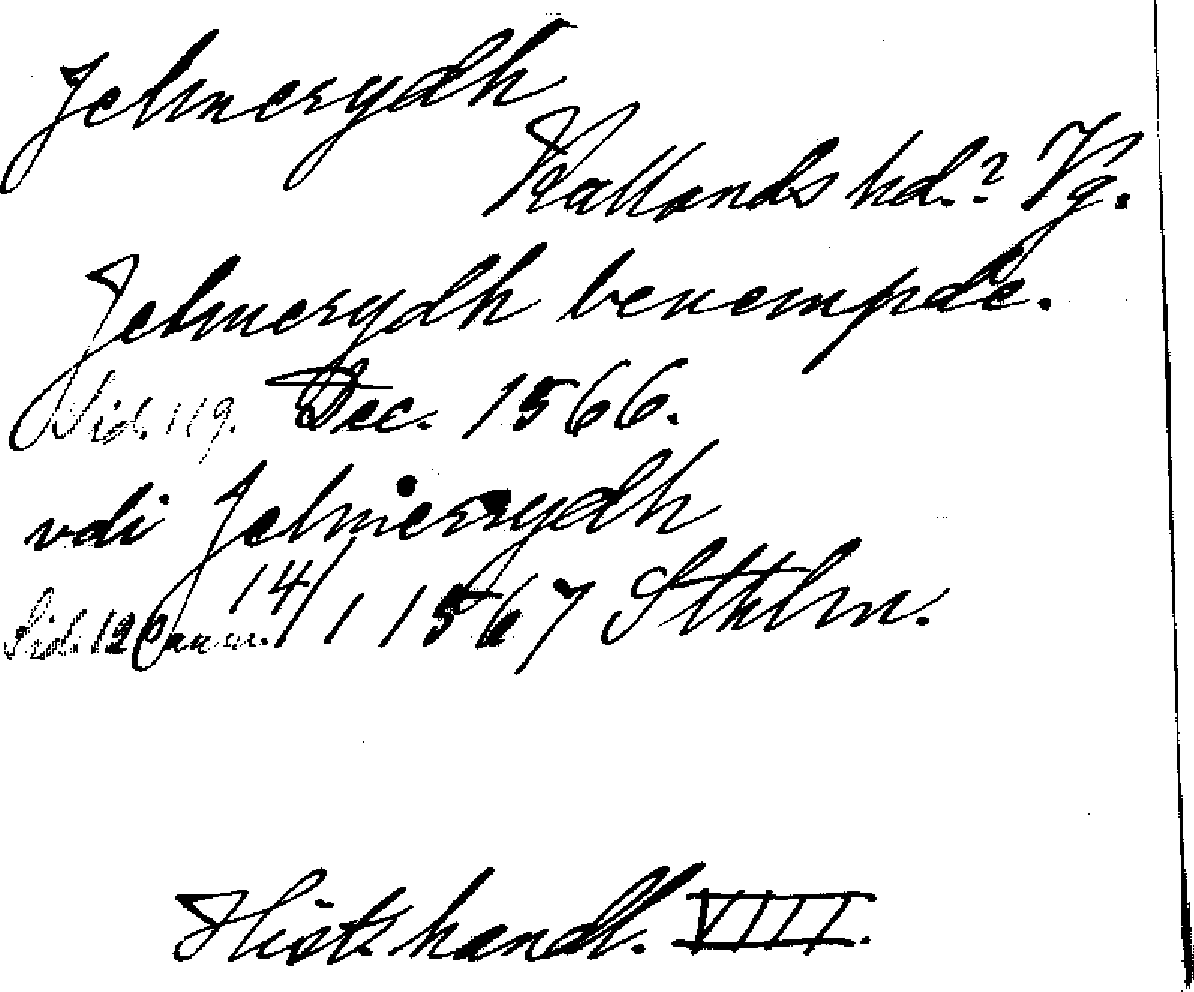 Jelmerydh
Kållands hd.? Vg.
Jelmerydh benempde.
Sid. 119. Dec. 1566.
vdi Jelmerrydh
Sid. 12 14/1 1567 Sthlm.
Hist. handl. VIII.